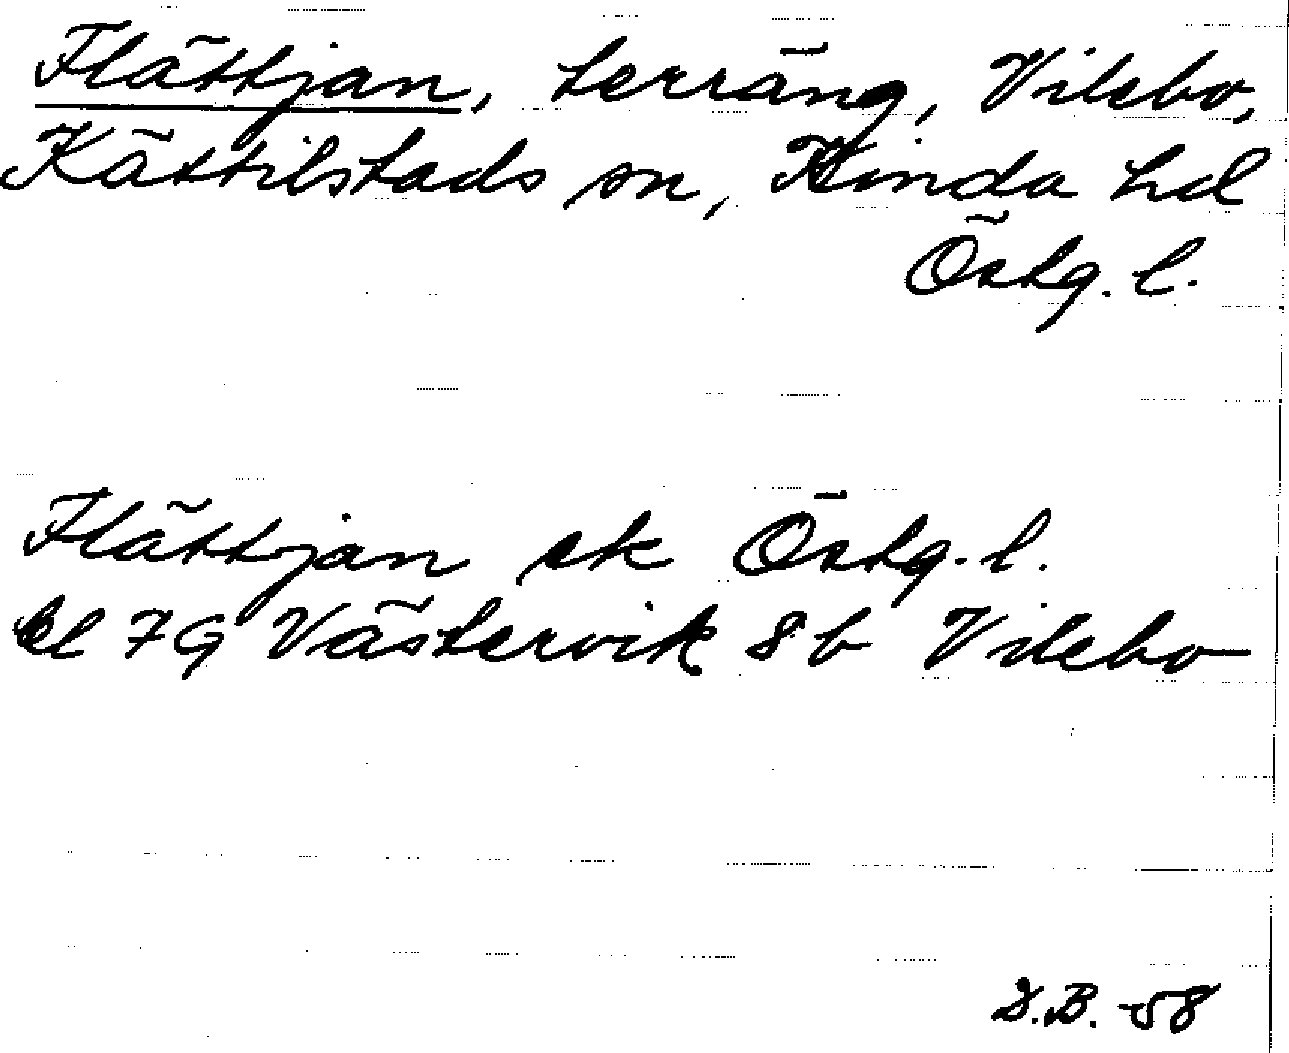 Flättjan, terräng, Vilebo,
Kättilstads sn, Kinda hd
Östg. l.
Flättjan ek Östg. l.
bl 7G Västervik 8b Vilebo
D.B. -58